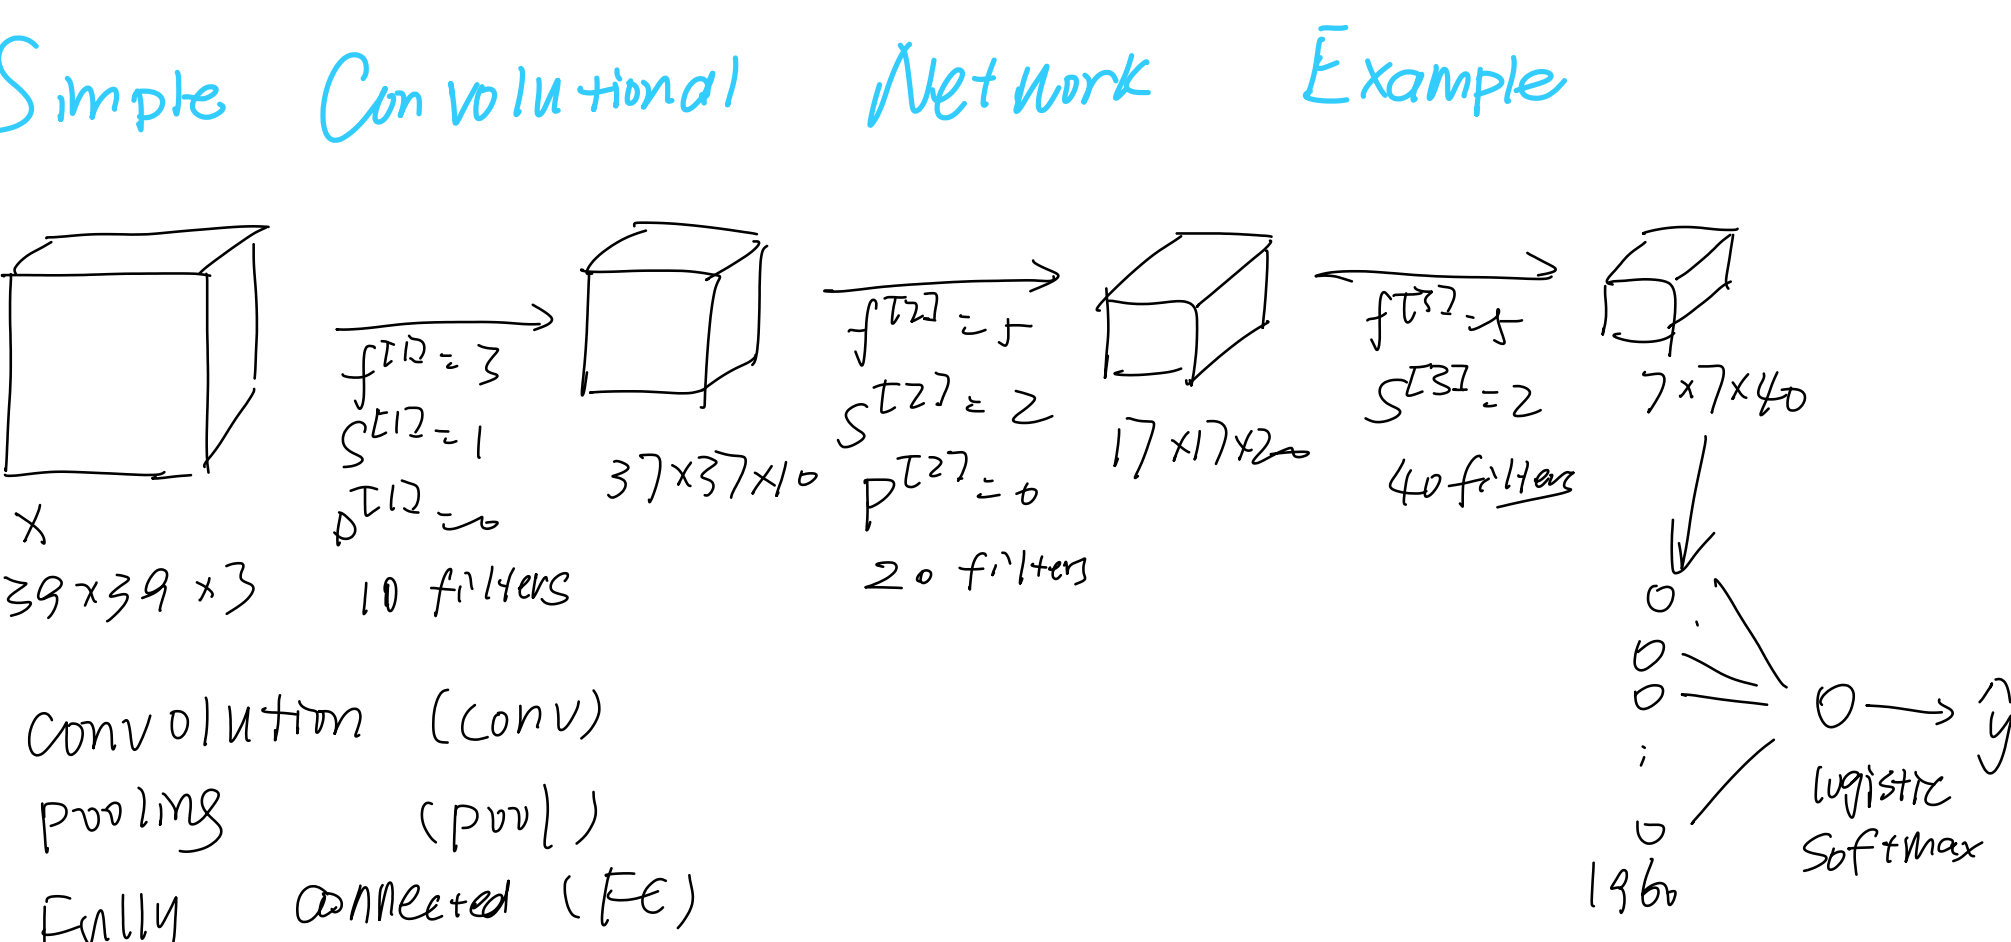 Simple Convolutional Network Example
f[1] = 3
S[1] = 1
P[1] = 0
10 filters
X
39 x 39 x 3
37 x 37 x 10
f[2] = 5
S[2] = 2
P[2] = 0
20 filters
17 x 17 x 20
f[3] = 5
S[3] = 2
40 filters
7 x 7 x 40
1960
logistic
softmax
ŷ
convolution (conv)
pooling (pool)
Fully connected (FC)